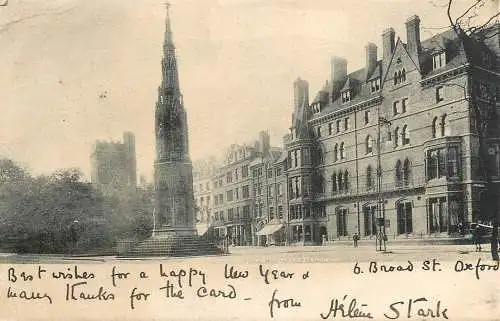 Best wishes for a happy New Year &
many Thanks for The Card. from Hélène Stark
6. Broad St. Oxford